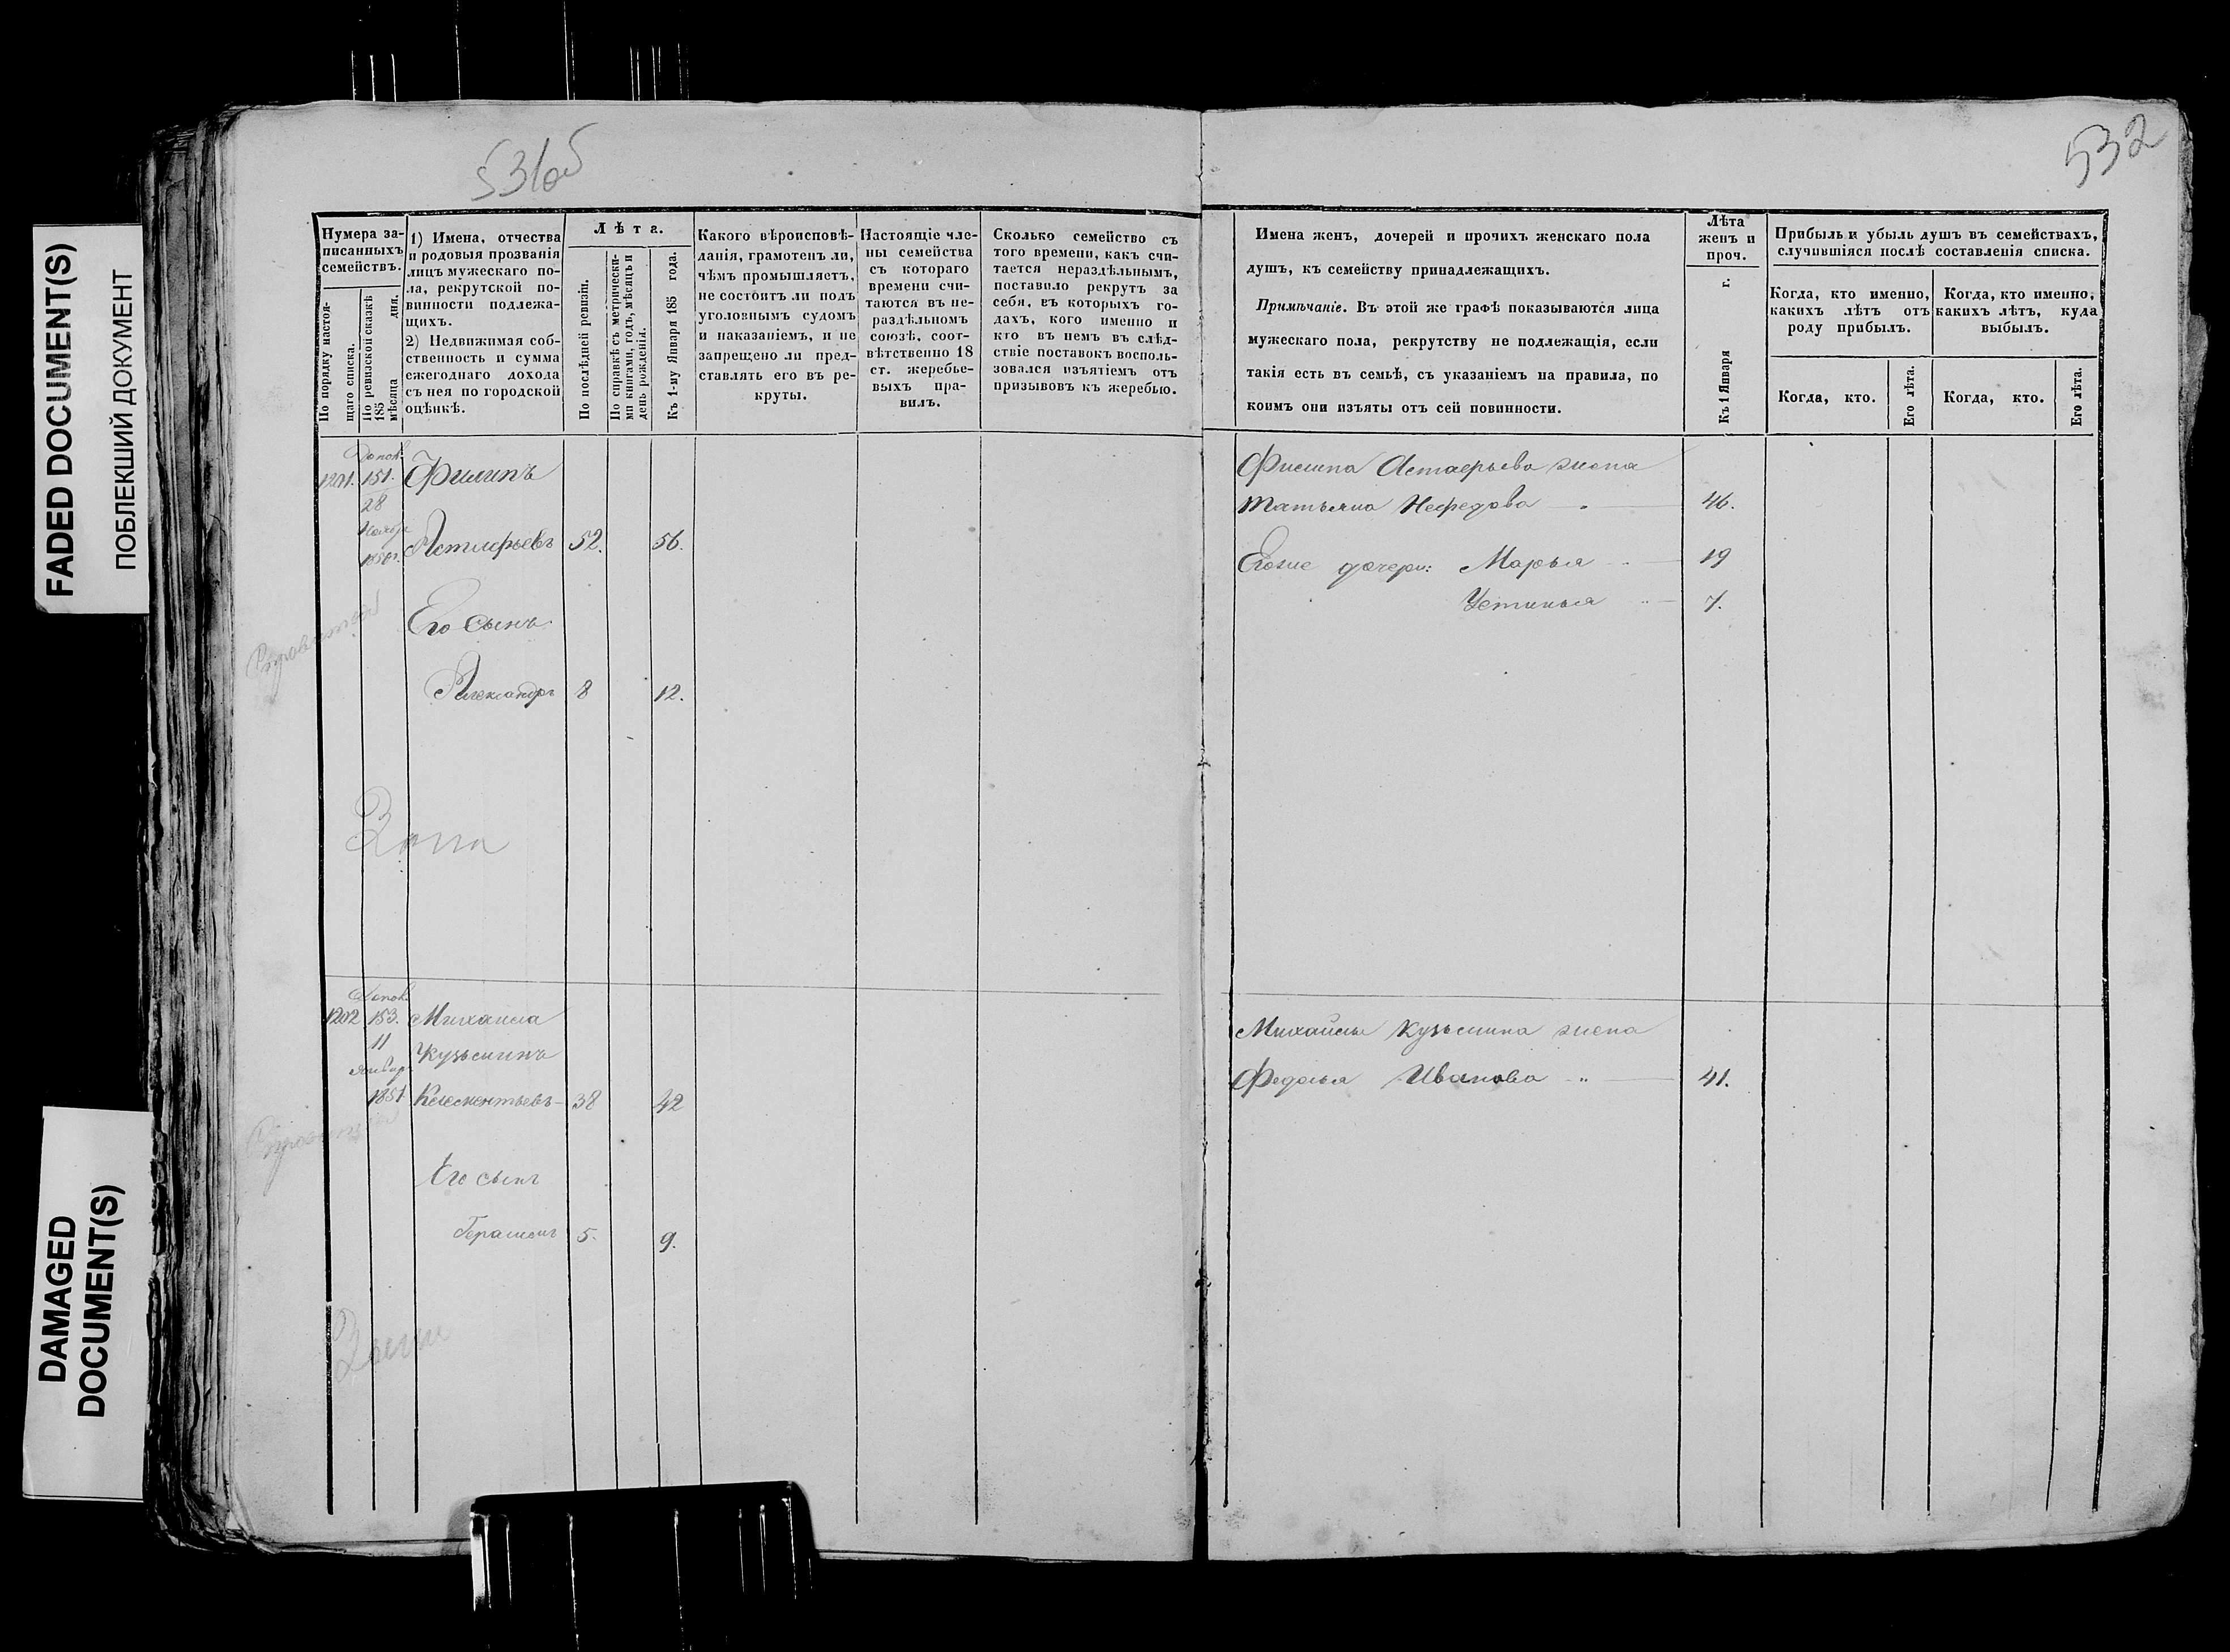 FADED DOCUMENT(S)
ПОБЛЕКШИЙ ДОКУМЕНТ
DAMAGED
DOCUMENT(S)
531об
Нумера за-
писанныхъ
семействъ.
По порядку настоя-
щаго списка.
По ревизской сказкѣ
185 дня.
мѣсяца
1) Имена, отчества
и родовыя прозванія
лицъ мужескаго по-
ла, рекрутской по-
винности подлежа-
щихъ.
2) Недвижимая соб-
ственность и сумма
ежегоднаго дохода
съ нея по городской
оцѣнкѣ.
Лѣта.
По послѣдней ревизіи.
По справкѣ съ метрически-
ми книгами, годъ, мѣсяцъ и
день рожденія.
Къ 1-му Января 185 года.
Какого вѣроисповѣ-
данія, грамотенъ ли,
чѣмъ промышляетъ,
не состоитъ ли подъ
уголовнымъ судомъ
и наказаніемъ, и не
запрещено ли пред-
ставлять его въ ре-
круты.
Настоящіе чле-
ны семейства
съ котораго
времени счи-
таются въ не-
раздѣльномъ
союзѣ, соот-
вѣтственно 18
ст. жеребье-
выхъ пра-
вилъ.
Сколько семейство съ
того времени, какъ счи-
тается нераздѣльнымъ,
поставило рекрутъ за
себя, въ которыхъ го-
дахъ, кого именно и
кто въ немъ въ слѣд-
ствіе поставокъ восполь-
зовался изъятіемъ отъ
призывовъ къ жеребью.
1201. Допол. 151. Филипъ
28
Ноябр
1850г. Астафьевъ 52. 56.
Его сынъ
Александръ 8 12.
1202 Допол. 153. Михаила
11 Кузьминъ
Январ
1851 Клементьевъ 38 42
Его сынъ
Герасимъ 5. 9.
532
Имена женъ, дочерей и прочихъ женскаго пола
душъ, къ семейству принадлежащихъ.
Примѣчаніе. Въ этой же графѣ показываются лица
мужескаго пола, рекрутству не подлежащія, если
такія есть въ семьѣ, съ указаніемъ на правила, по
коимъ они изъяты отъ сей повинности.
Лѣта
женъ и
проч.
Къ 1 Января г.
Прибыль и убыль душъ въ семействахъ,
случившіяся послѣ составленія списка.
Когда, кто именно,
какихъ лѣтъ отъ
роду прибылъ.
Когда, кто именно,
какихъ лѣтъ, куда
выбылъ.
Когда, кто.
Его лѣта.
Когда, кто.
Его лѣта.
Филипа Астафьева жена
Татьяна Нефедова 46.
Егоже дочери: Марья 19
Устинья 7.
Михайлы Кузьмина жена
Федосья Иванова 41.